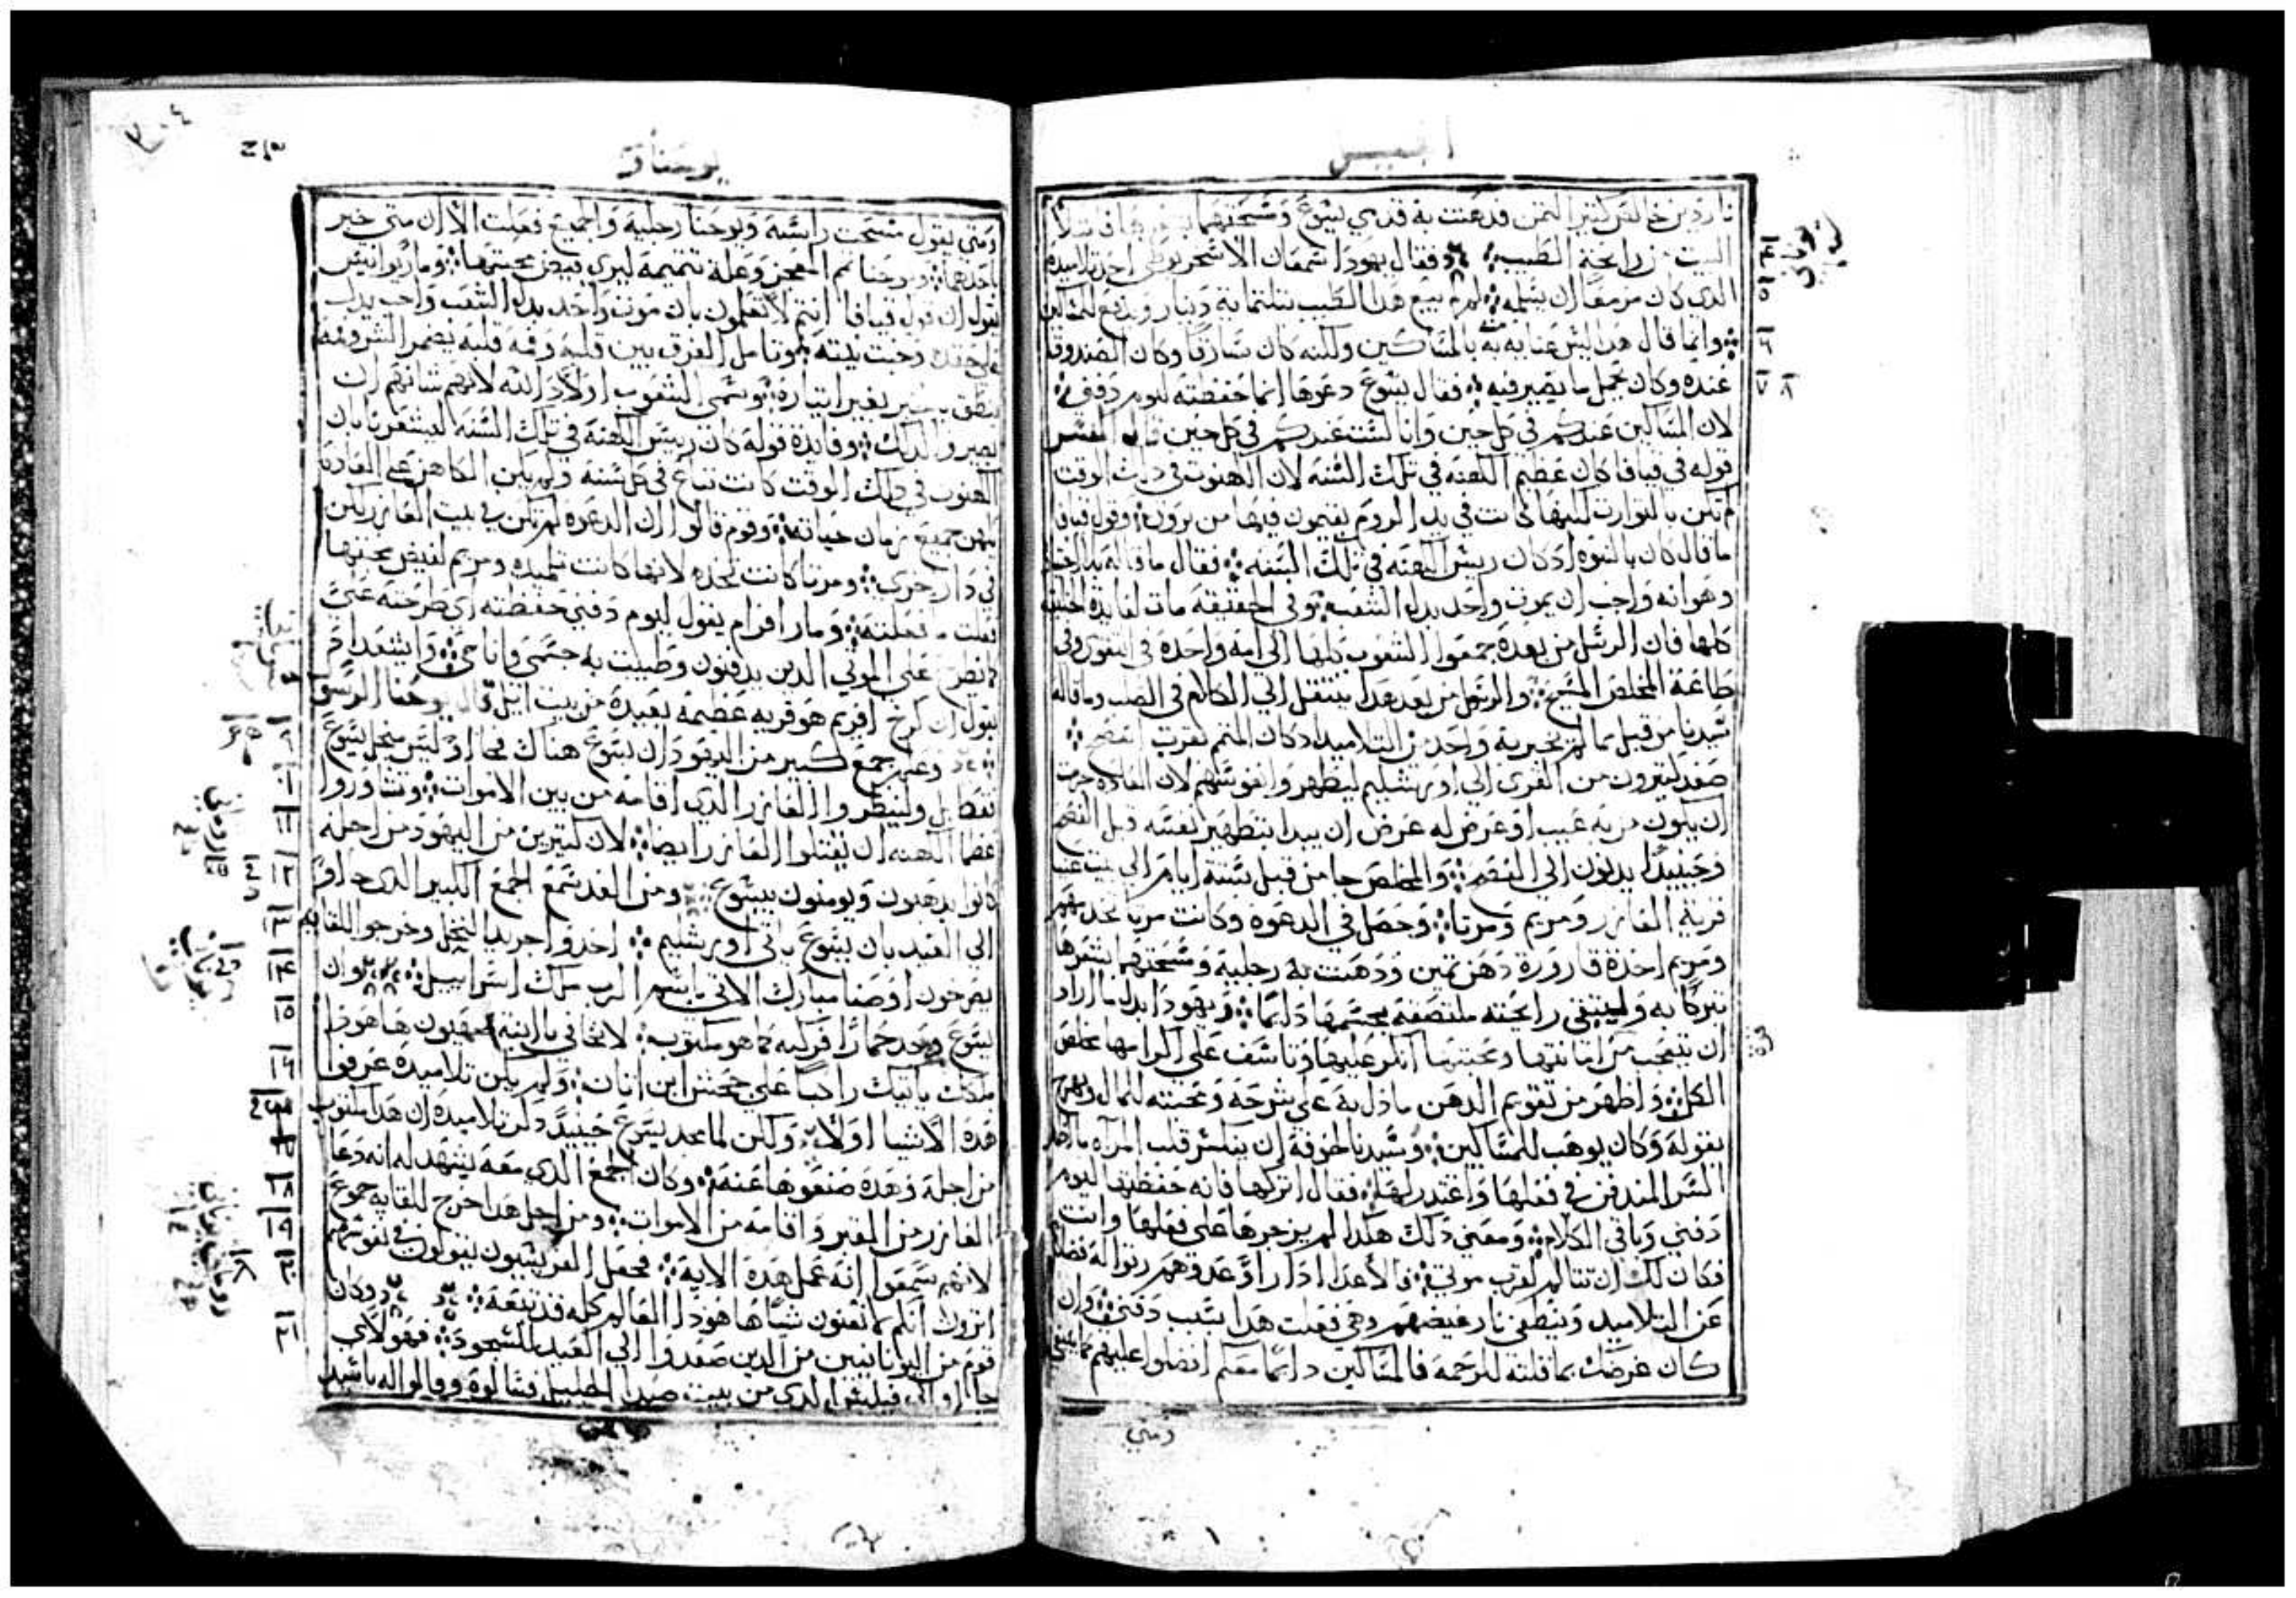 انجيل
ناردين خالص كثير الثمن فدهنت به قدمي يسوع ومسحتهما
البيت من رايحة الطيب فقال يهودا شمعان الاسخريوطي احد تلاميده
الدي كان مزمعا ان يسلمه لم لم يبيع هدا الطيب بتلتماية دينار ويدفع للمساكين
وانما قال هدا ليس عنايه منه بالمساكين ولكنه كان سارقا وكان الصندوق
عنده وكان يحمل ما يصير فيه فقال يسوع دعوها انما حفضته ليوم دفني
لان المساكين عندكم في كل حين وانا لست عندكم في كل حين قال المفسر
قوله في قيافا كان عضيم الكهنه في تلك السنه لان الكهنوت في دلك الوقت
لم تكن بالتوارت لكنها كانت في يد الروم يقيمون فيها من يرون وقول قيافا
ما قال كان بالنبوه اد كان رييس الكهنه في تلك السنه فقال ما قاله
وهو انه واجب ان يموت واحد بدل الشعب وفي الحقيقه مات لفايدة الخليقه
كلها فان الرسل من بعده جمعوا الشعوب كلها الي امه واحدة في التقوى وفي
طاعة المخلص المسيح والرسول من بعد هدا ينتقل الي الكلام في الصلب وما قاله
سيدنا من قبل مما لم يخبر به واحد من التلاميد ادكان المتمم لقرب الفصح
صعد كثيرون من القرى الي اورشليم ليطهروا نفوسهم لان العاده جرت
ان يكون من به عيب او عرض له عرض ان يبدا بتطهير نفسه قبل الفصح
وحينيدا يدنون الي الفصح والمخلص جا من قبل ستة ايام الي بيت عنيا
قرية العازر ومريم ومرتا وحصل في الدعوه وكانت مرتا تخدمهم
ومريم اخدة قارورة دهن تمين ودهنت به رجليه ومسحتهما بشعرها
تبركا به وليبتقي رايحته ملتصقة بجسمها دايما ويهودا بدل ما اراد
ان يتعجب من امانتها ومحبتها انكر عليها وتاسف علي اكرامها مخلص
الكل واظهر من تقويم الدهن ما دل به علي شرحه ومحبته للمال
بقوله وكان يوهب للمساكين وسيدنا لخوفه ان ينكسر قلب المراه
السر المندفن في فعلها واعتدر لها فقال اتركها فانه حفضتها ليوم
دفني وباقي الكلام ومعني دلك هكدا لم يزجرها علي فعلها وانت
فكان لك ان تتالم لقرب موتي
عن التلاميد وتنطفي نار غيضهم وهي فعلت هدا بسبب دفني وان
كان غرضك بما قلته للرحمه فالمساكين دايما معكم افضلوا عليهم
ومتي
٤
٥
٦
٧ ٨
يوحنا
ومتي يقول مسحت راسه ويوحنا رجليه والجميع فعلت الا ان متي خبر
باحدهما ويوحنا تمم المعجز وعلة تتميمه ليري فيض محبتها ومار يوانيس
يقول ان قول قيافا انتم لا تعلمون بان موت واحد بدل الشعب واجب يدل
علي حقده وخبت نيته وتامل الفرق بين قلبه وفمه قلبه يضمر الشر وفمه
ينطق بخير بغير ايتياره وتسمي الشعوب اولاد الله لانهم شانهم ان
يصيروا لدلك وفايدة قوله كان رييس الكهنة في تلك السنه ليشعرنا بان
الكهنوت في دلك الوقت كانت تباع في كل سنة ولم يكن الكاهن علي العادة
يكهن جميع زمان حياته وقوم قالوا ان الدعوه لم تكن في بيت العازر لكن
في دار اخرى ومرتا كانت تخدم لانها كانت تلميده ومريم لفيض محبتها
فعلت ما فعلته ومار افرام يقول ليوم دفني حفضته اي طرحته علي
كما يطرح علي الموتي الدين يدفنون وطيبت به جسمي وانا حي وايشعداد
يقول ان كرخ افريم هو قريه عضيمه بعيدة من بيت ايل قال يوحنا الرسول
وعلم جمع كبير من اليهود ان يسوع هناك فجاوا وليس من اجل يسوع
فقط بل ولينظروا العازر الدي اقامه من بين الاموات وتشاوروا
عضما الكهنه ان يقتلوا العازر ايضا لان كثيرين من اليهود من اجله
كانوا يدهبون ويومنون بيسوع ومن الغد سمع الجمع الكبير الدي جاوا
الي العيد بان يسوع ياتي اورشليم اخدوا جريد النخل وخرجوا للقايه
يصرخون اوصنا مبارك الاتي باسم الرب ملك اسراييل وان
يسوع وجد حمارا فركبه كما هو مكتوب لا تخافي يا ابنة صهيون ها هودا
ملكك ياتيك راكبا علي جحش ابن اتان ولم يكن تلاميده عرفوا
هده الاشيا اولا ولكن لما مجد يسوع حينيد دكر تلاميده ان هدا مكتوب
من اجله وهده صنعوها عنه وكان الجمع الدي معه يشهد له انه دعا
العازر من القبر واقامه من الاموات ومن اجل هدا خرج للقايه جموع
لانهم سمعوا انه عمل هده الايه فجعل الفريسيون يقولون في نفوسهم
اترون انكم ما تغنون شيا ها هودا العالم كله قد تبعه وكان
قوم من اليونانيين من الدين صعدوا الي العيد للسجود فهولاي
جااوا الي فيلبس الدي من بيت صيدا الجليل فسالوه وقالوا له ياسيد
١٠
١١
١٢
١٣
١٤
١٥
١٦
١٨
١٩
٢٠
٢١